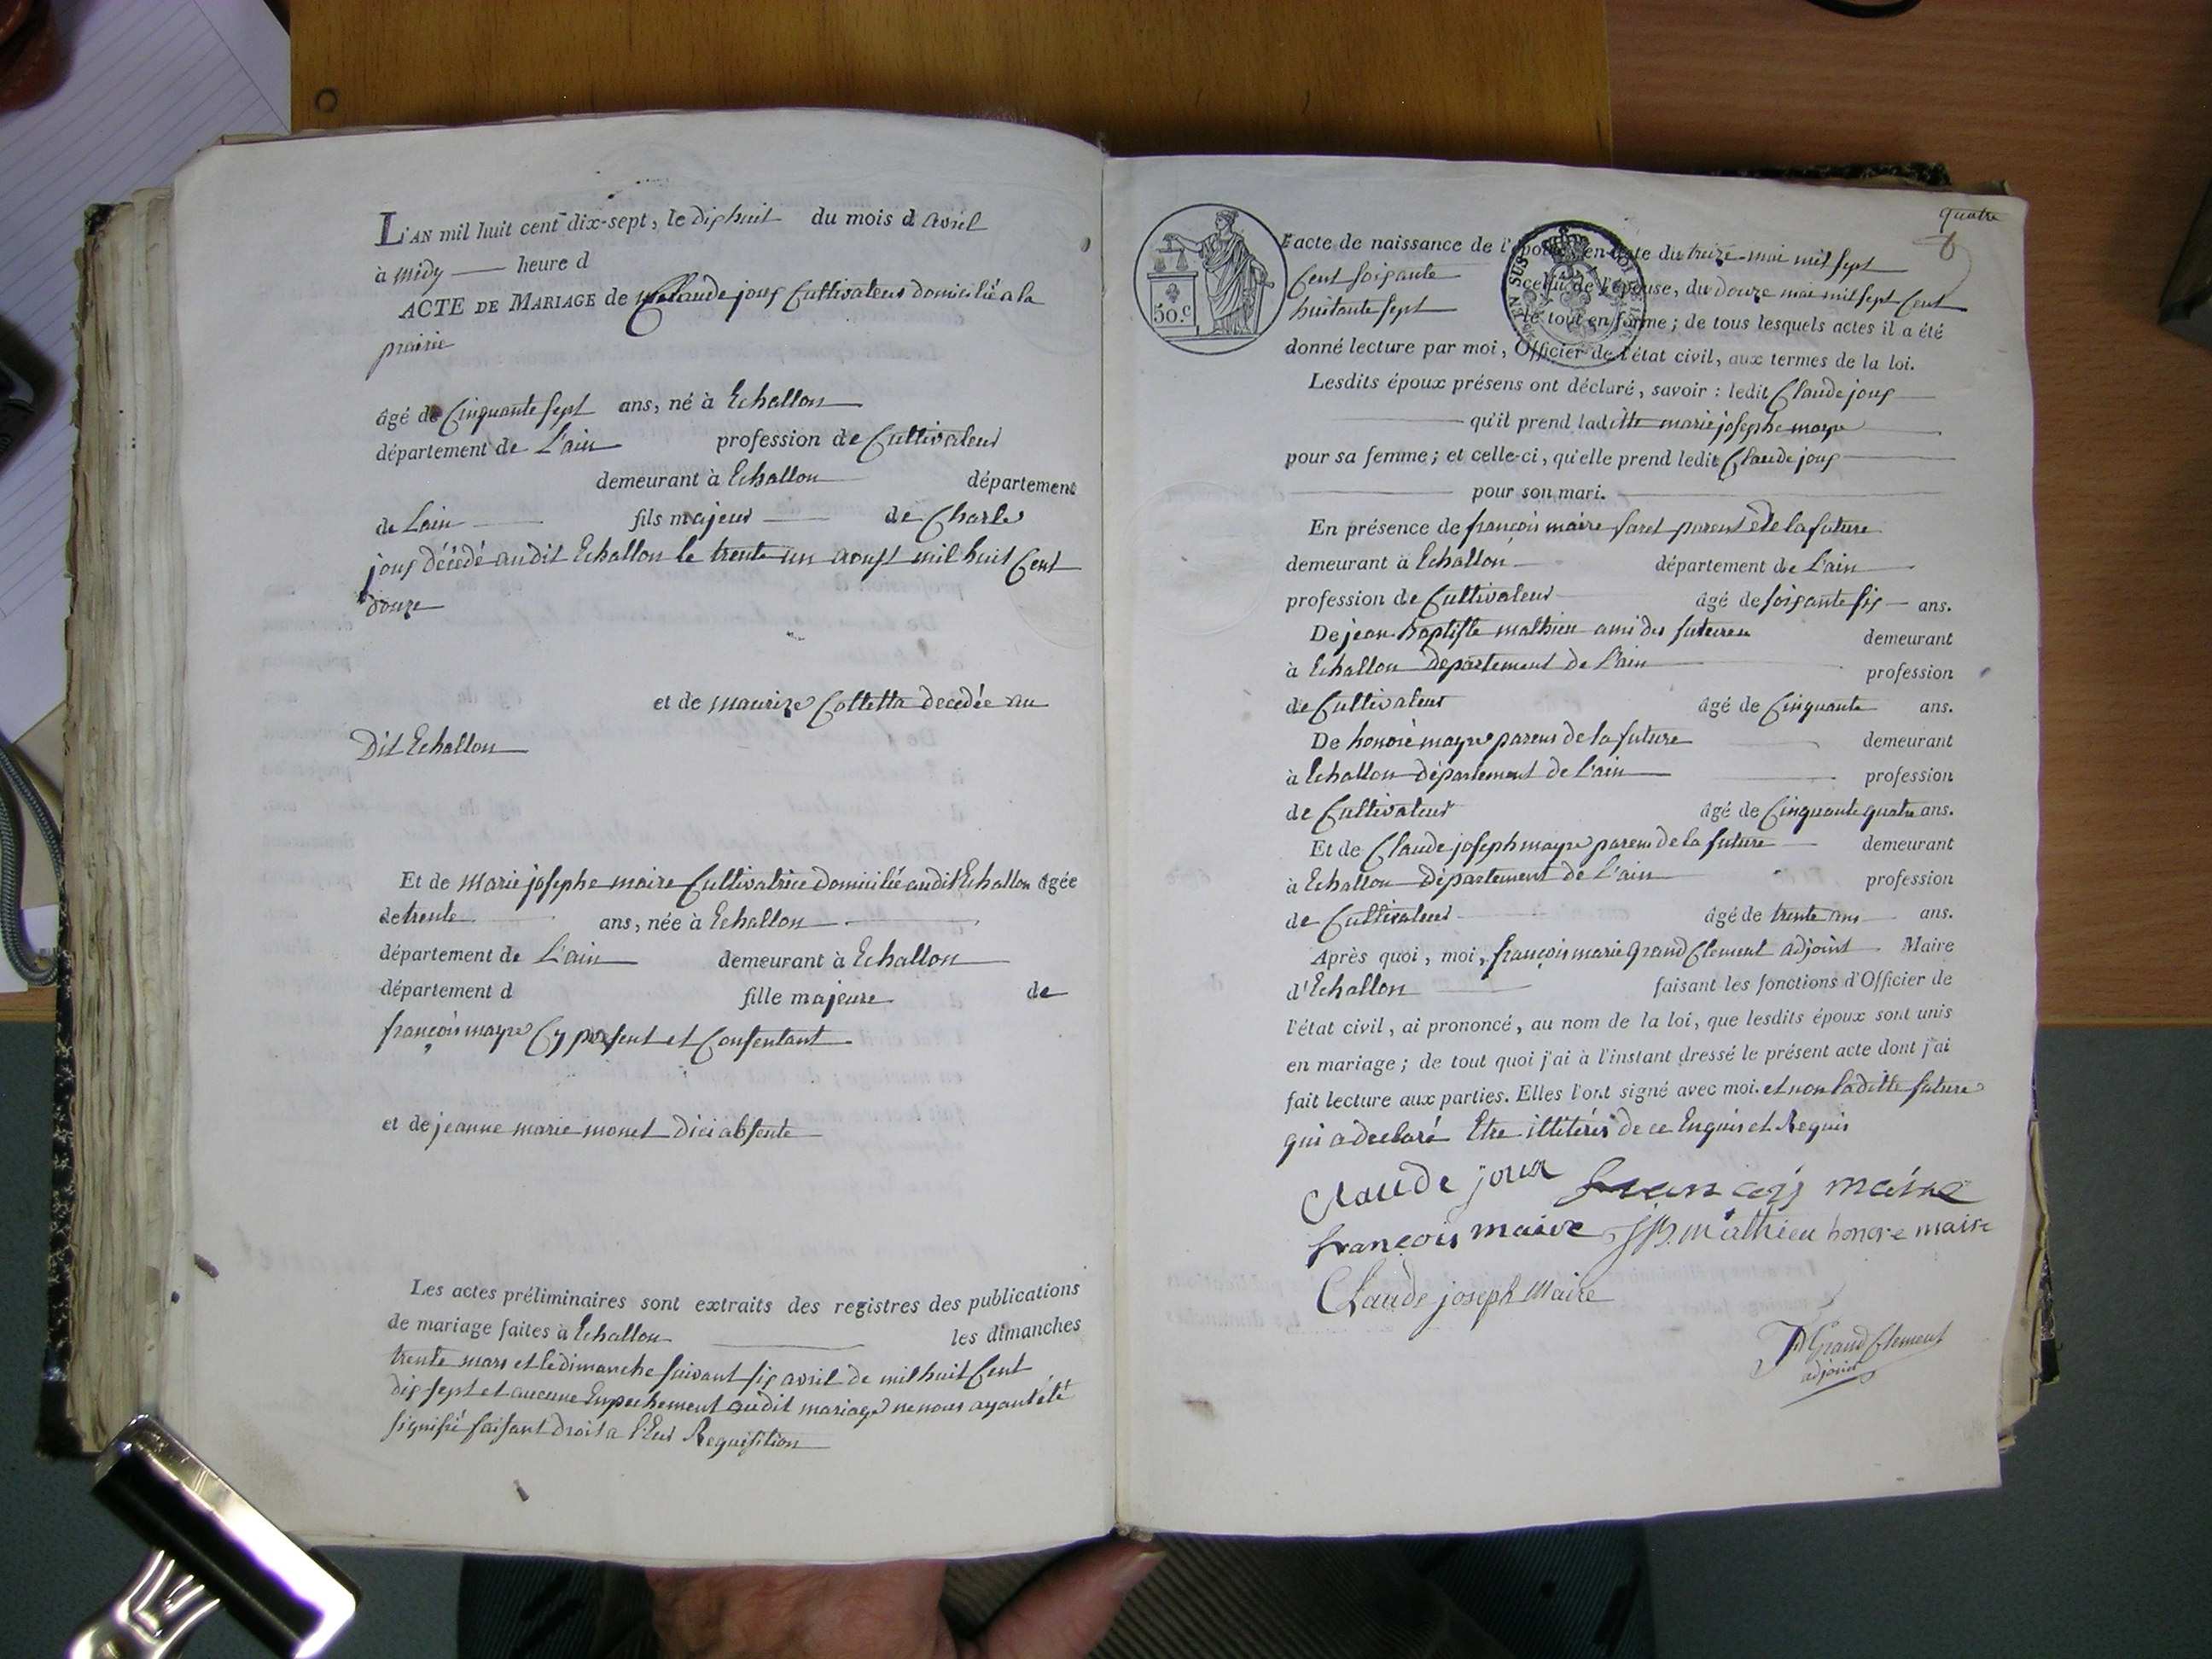 L'AN mil huit cent dix-sept, le dix huit du mois d avril
à midy heure d
ACTE DE MARIAGE de Claude joux Cultivateur domicilié a la
prairie
âgé de Cinquante sept ans, né à Echallon
département de L'ain profession de Cultivateur
demeurant à Echallon département
de Lain fils majeur de Charle
joux décédé au dit Echallon le trente un aoust mil huit Cent
douze
et de maurize Colletta decedée au
Dit Echallon
Et de Marie josephe maire Cultivatrice domiciliée au dit Echallon âgée
de trente ans, née à Echallon
département de L'ain demeurant à Echallon
département d fille majeure de
françois mayre Cy present et Consentant
et de jeanne marie monet Dici absente
Les actes préliminaires sont extraits des registres des publications
de mariage faites à Echallon les dimanches
trente mars et le dimanche suivant six avril de mil huit Cent
dix sept et aucune Empechement au dit mariage ne nous ayant été
signifié faisant droit a Leur Requisition
quatre
50.c
l'acte de naissance de l'époux, en date du treize mai mil sept
Cent soixante
celui de l'épouse, du douze mai mil sept Cent
huitante sept
le tout en forme; de tous lesquels actes il a été
donné lecture par moi, Officier de l'état civil, aux termes de la loi.
Lesdits époux présens ont déclaré, savoir: ledit Claude joux
qu'il prend laditte marie josephe mayre
pour sa femme; et celle-ci, qu'elle prend ledit Claude joux
pour son mari.
En présence de françois maire faret parent de la future
demeurant à Echallon département de L'ain
profession de Cultivateur âgé de soixante six ans.
De jean Baptiste mathieu ami des futeures demeurant
à Echallon departement de L'ain profession
de Cultivateur âgé de Cinquante ans.
De honoré mayre parens de la future demeurant
à Echallon département de L'ain profession
de Cultivateur âgé de Cinquante quatre ans.
Et de Claude joseph mayre parens de la future demeurant
à Echallon Département de L'ain profession
de Cultivateur âgé de trente ans ans.
Après quoi, moi, françois marie Grand Clement adjoint Maire
d'Echallon faisant les fonctions d'Officier de
l'état civil, ai prononcé, au nom de la loi, que lesdits époux sont unis
en mariage; de tout quoi j'ai à l'instant dressé le présent acte dont j'ai
fait lecture aux parties. Elles l'ont signé avec moi. et non laditte future
qui a declaré Etre illitérés de ce Enquis et Requis
Claude joux françois maire
françois maire JB. mathieu honore maire
Claude joseph Maire
Grand Clement
adjoint